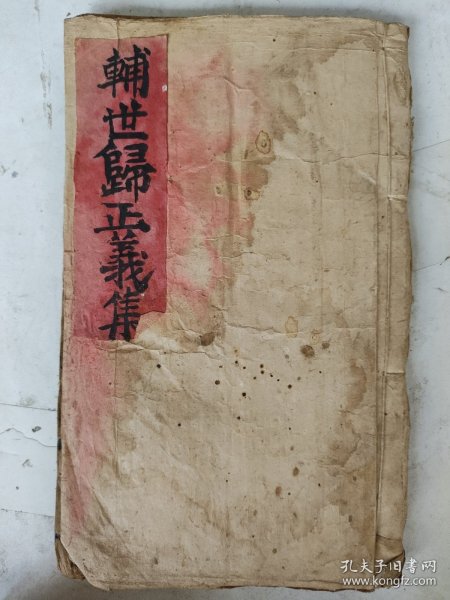 輔世歸正義集
孔夫子旧书网
www.kongfz.com